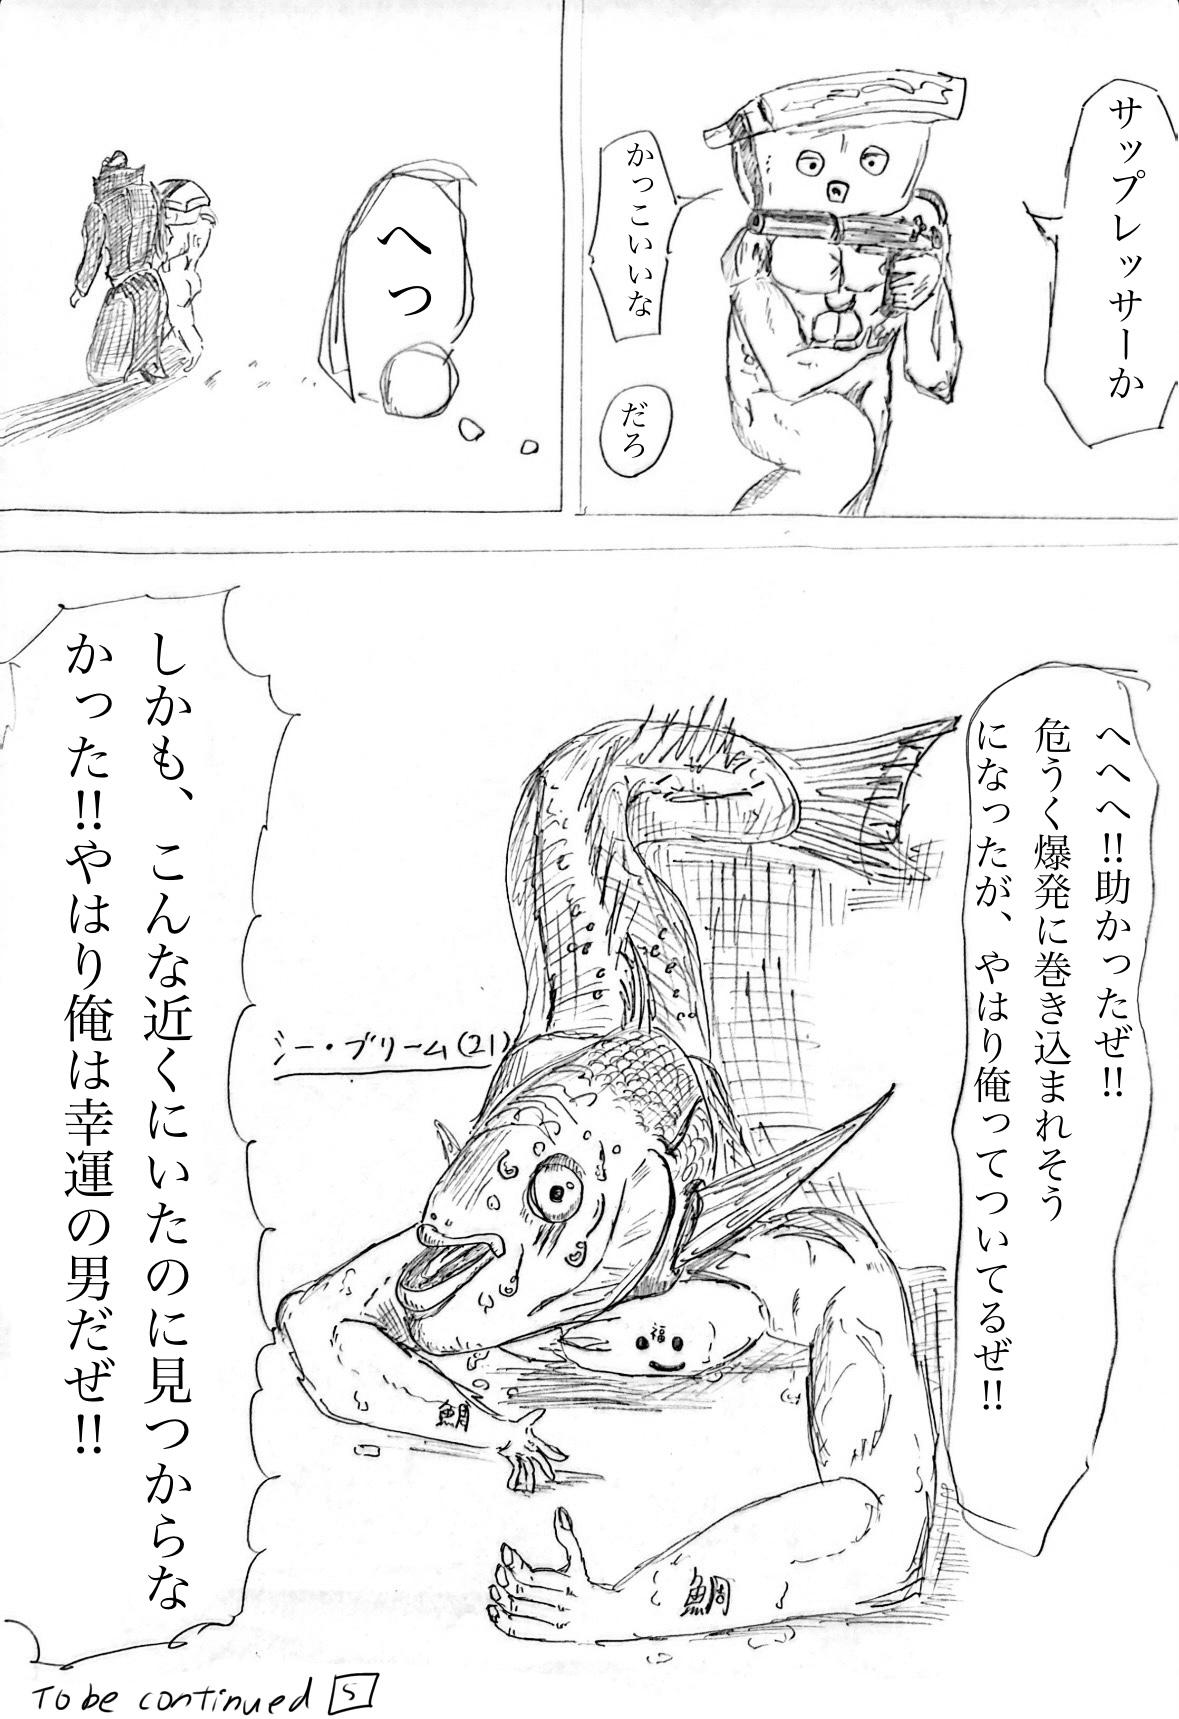 サップレッサーか
かっこいいな
だろ
へっ
へへへ!!助かったぜ!!
危うく爆発に巻き込まれそう
になったが、やはり俺ってついてるぜ!!
シー・ブリーム(21)
福
鯛
鯛
しかも、こんな近くにいたのに見つからな
かった!!やはり俺は幸運の男だぜ!!
To be continued 5